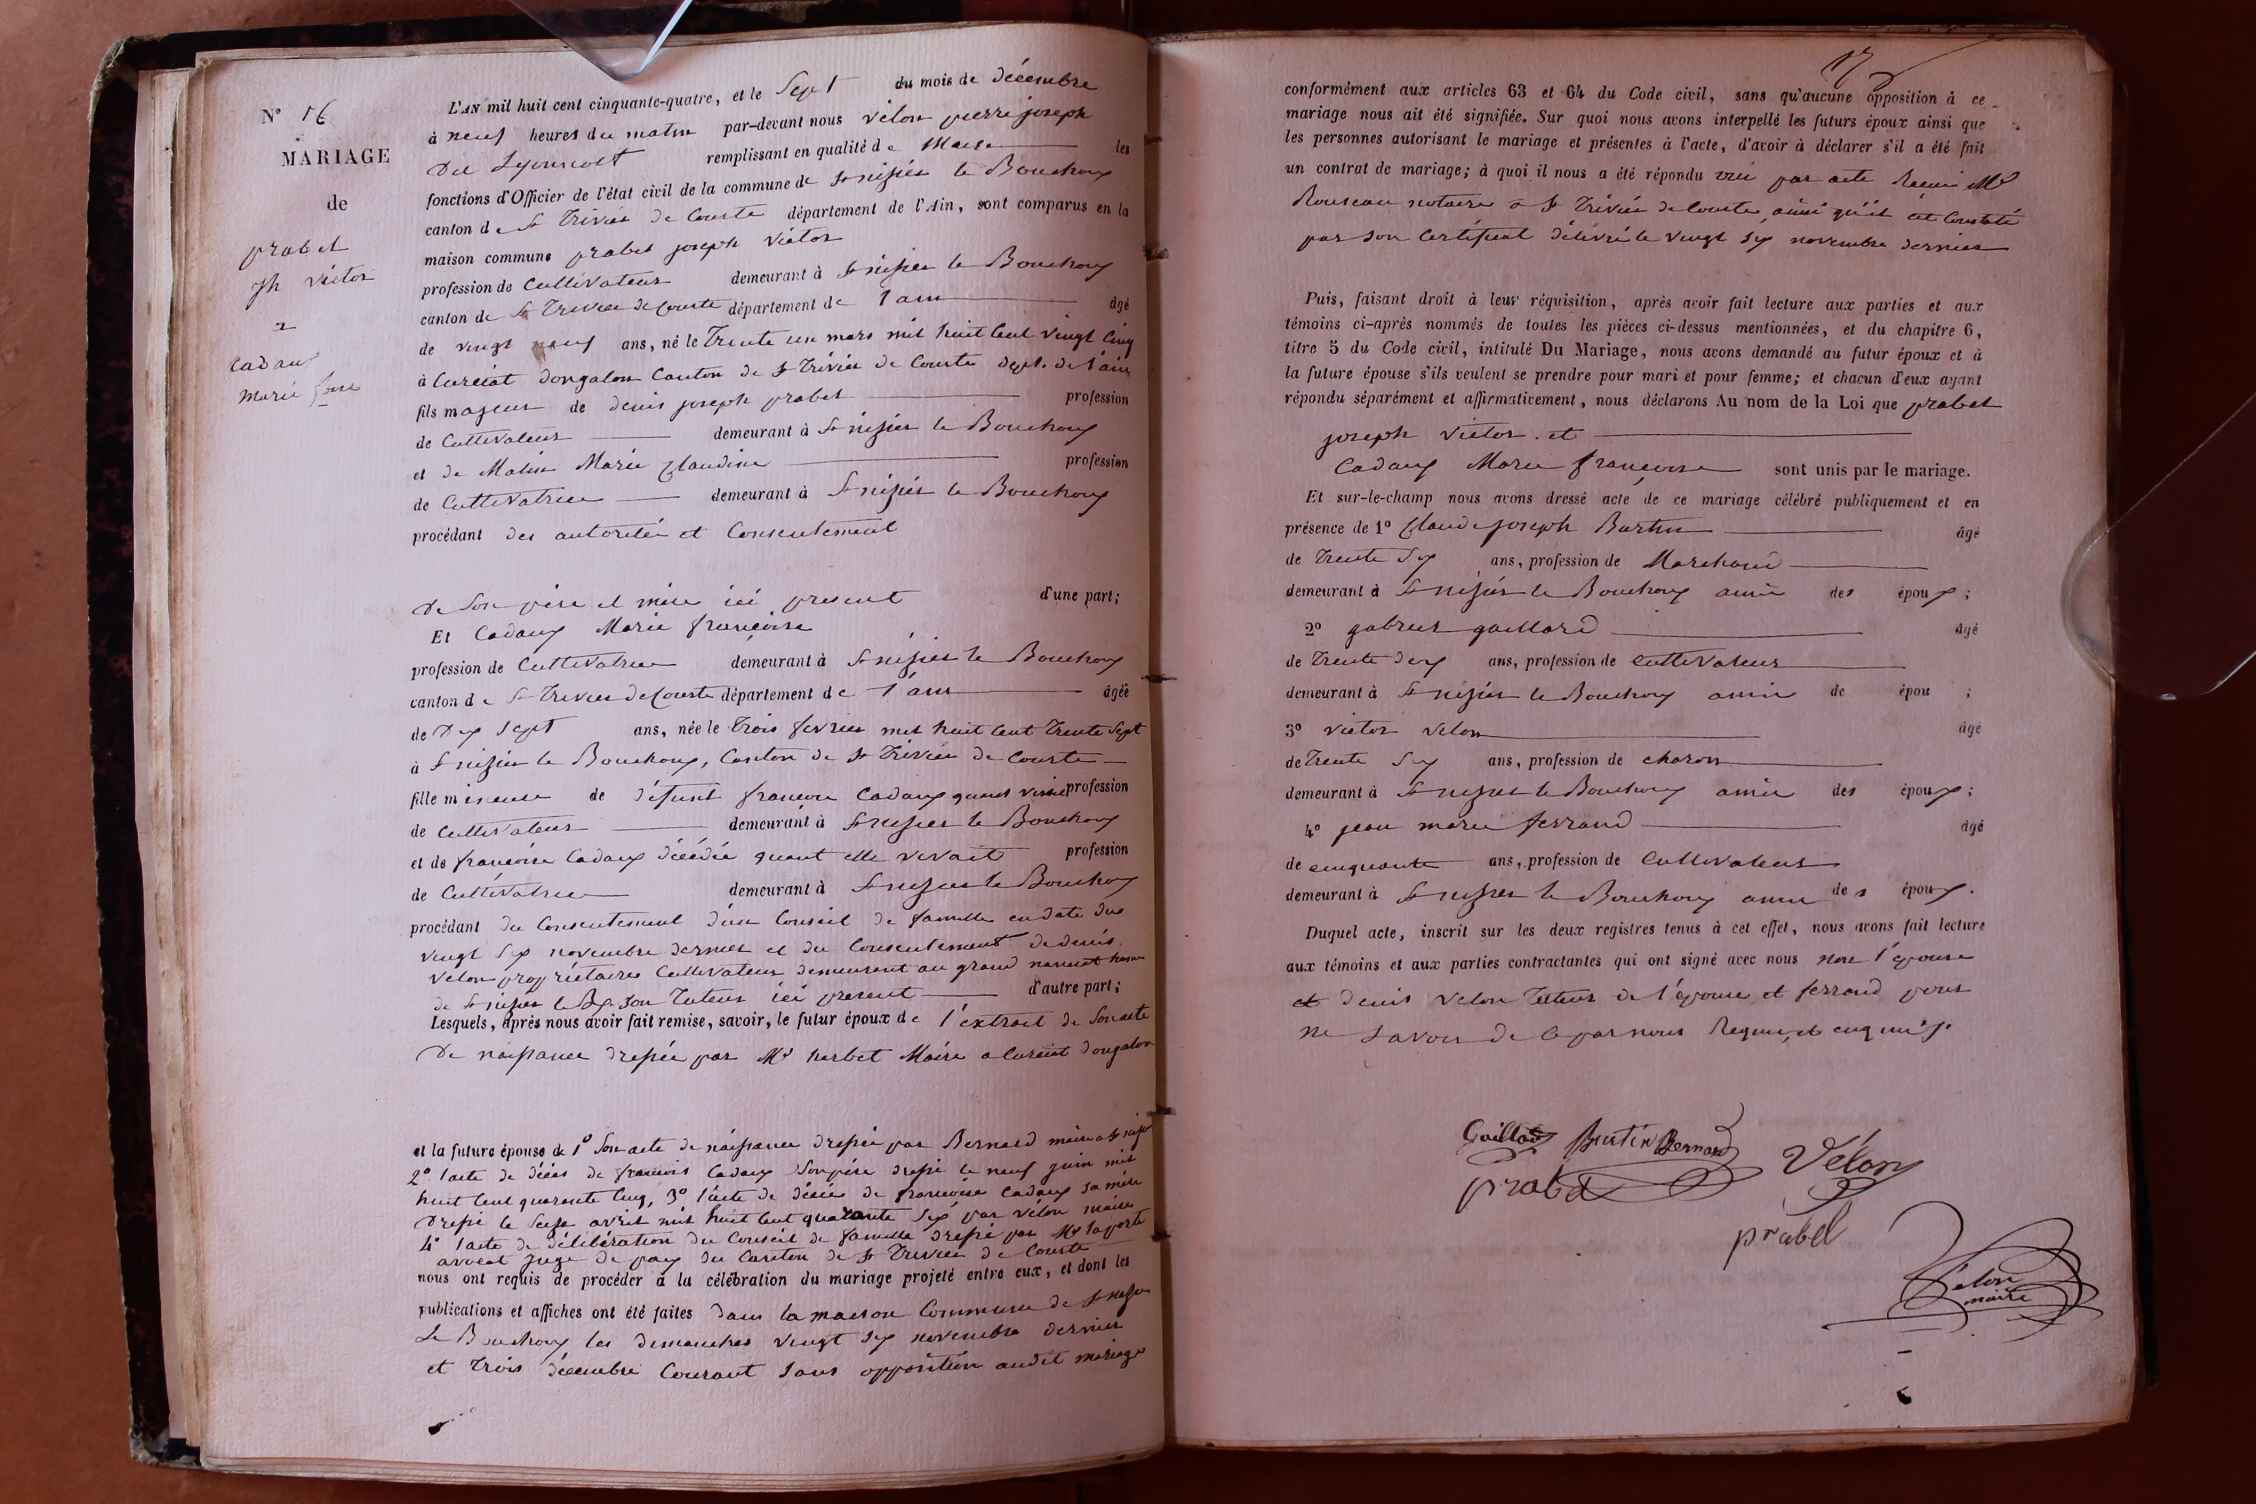 N° 16
MARIAGE
de
prabel
jh victor
et
cadaux
marie fçoise
L'AN mil huit cent cinquante-quatre, et le Sept du mois de décembre
à neuf heures du matin par-devant nous vélon pierre joseph
remplissant en qualité de Maire les
fonctions d'Officier de l'état civil de la commune de St nizier le Bouchoux
canton de St Trivier de Courte département de l'Ain, sont comparus en la
maison commune prabel joseph victor
profession de Cultivateur demeurant à St nizier le Bouchoux
canton de St Trivier de Courte département de l'ain âgé
de vingt neuf ans, né le Trente un mars mil huit Cent vingt Cinq
à Curciat dongalon Canton de St Trivier de Courte dept. de l'ain
fils majeur de denis joseph prabel profession
de Cultivateur demeurant à St nizier le Bouchoux
et de Marie Claudine profession
de Cultivatrice demeurant à St nizier le Bouchoux
procédant des autorités et Consentement
de Son père et mère ici present d'une part;
Et Cadaux Marie françoise
profession de Cultivatrice demeurant à St nizier le Bouchoux
canton de St Trivier de Courte département de l'ain âgée
de Dix Sept ans, née le Trois fevrier mil huit Cent Trente Sept
à St nizier le Bouchoux, Canton de St Trivier de Courte
fille mineure de défunt francois Cadaux quand vivait profession
de Cultivateur demeurant à St nizier le Bouchoux
et de françoise Cadaux décédée quant elle vivait profession
de Cultivatrice demeurant à St nizier le Bouchoux
procédant du Consentement d'un Conseil de famille en date du
vingt Six novembre dernier et du Consentement de denis
Velon propriétaires Cultivateur demeurent au grand
de St nizier le Bx Son Tuteur ici present d'autre part;
Lesquels, après nous avoir fait remise, savoir, le futur époux de l'extrait de Son acte
De naissance dressée par Mr herbet Maire a Curciat dongalon
et la future épouse de 1° Son acte de naissance dressée par Bernard maire a St nizier
2° l'acte de décès de francois Cadaux Son père dressé le neuf juin mil
huit Cent quarante Cinq, 3° l'acte de décès de francoise Cadaux sa mère
Dressé le Sept avril mil huit Cent quarante Six par vélon maire
4° l'acte de délibération du Conseil de famille dressé par Mr laporte
avocat juge de paix du Canton de St Trivier de Courte
nous ont requis de procéder à la célébration du mariage projeté entre eux, et dont les
publications et affiches ont été faites dans la maison Commune de St nizier
Le Bouchoux les dimanches vingt Six novembre dernier
et Trois décembre Courant Sans opposition audit mariage
17
conformément aux articles 63 et 64 du Code civil, sans qu'aucune opposition à ce
mariage nous ait été signifiée. Sur quoi nous avons interpellé les futurs époux ainsi que
les personnes autorisant le mariage et présentes à l'acte, d'avoir à déclarer s'il a été fait
un contrat de mariage; à quoi il nous a été répondu oui par acte Recue Mr
Rouseau notaire a St Trivier de Courte, ainsi qu'il est Constaté
par son Certificat délivré le vingt Six novembre dernier
Puis, faisant droit à leur réquisition, après avoir fait lecture aux parties et aux
témoins ci-après nommés de toutes les pièces ci-dessus mentionnées, et du chapitre 6,
titre 5 du Code civil, intitulé Du Mariage, nous avons demandé au futur époux et à
la future épouse s'ils veulent se prendre pour mari et pour femme; et chacun d'eux ayant
répondu séparément et affirmativement, nous déclarons Au nom de la Loi que prabel
joseph victor. et
Cadaux Marie françoise sont unis par le mariage.
Et sur-le-champ nous avons dressé acte de ce mariage célébré publiquement et en
présence de 1° Claude joseph Burtin âgé
de Trente Six ans, profession de Marchand
demeurant à St nizier le Bouchoux amie des époux;
2° gabriel gaillard âgé
de Trente deux ans, profession de Cultivateur
demeurant à St nizier le Bouchoux amie de épou ;
3° victor velon âgé
de Trente Six ans, profession de charon
demeurant à St nizier le Bouchoux amie des époux;
4° jean marie ferrand âgé
de cinquante ans, profession de Cultivateur
demeurant à St nizier le Bouchoux amie des époux.
Duquel acte, inscrit sur les deux registres tenus à cet effet, nous avons fait lecture
aux témoins et aux parties contractantes qui ont signé avec nous non l'epouse
et denis Velon Tuteur de l'épouse et ferrand pour
ne Savoir de ce par nous Requis et enquis.
Gaillard Burtin Bernard Vélon
prabel
prabel
Vélon
maire